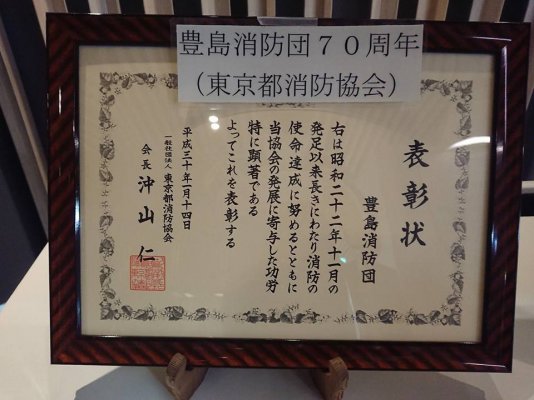 豊島消防団７０周年
（東京都消防協会）
表彰状
豊島消防団
右は昭和二十二年十一月の
発足以来長きにわたり消防の
使命達成に努めるとともに
当協会の発展に寄与した功労
特に顕著である
よってこれを表彰する
平成三十年一月十四日
一般社団法人 東京都消防協会
会長 沖山 仁